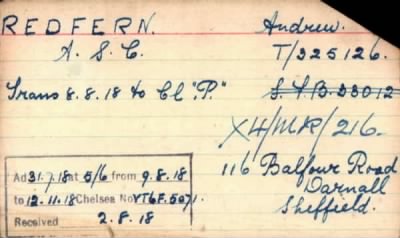 REDFERN. Andrew.
A. S. C. T/325126.
Trans 8.8.18 to Cl "P." S.T.B. 33012
X4/MR/216.
116 Balfour Road
Darnall
Sheffield.
Ad 31.7.18 at 5/6 from 9.8.18
to 12.11.18 Chelsea No VT6F.5071.
Received 2.8.18